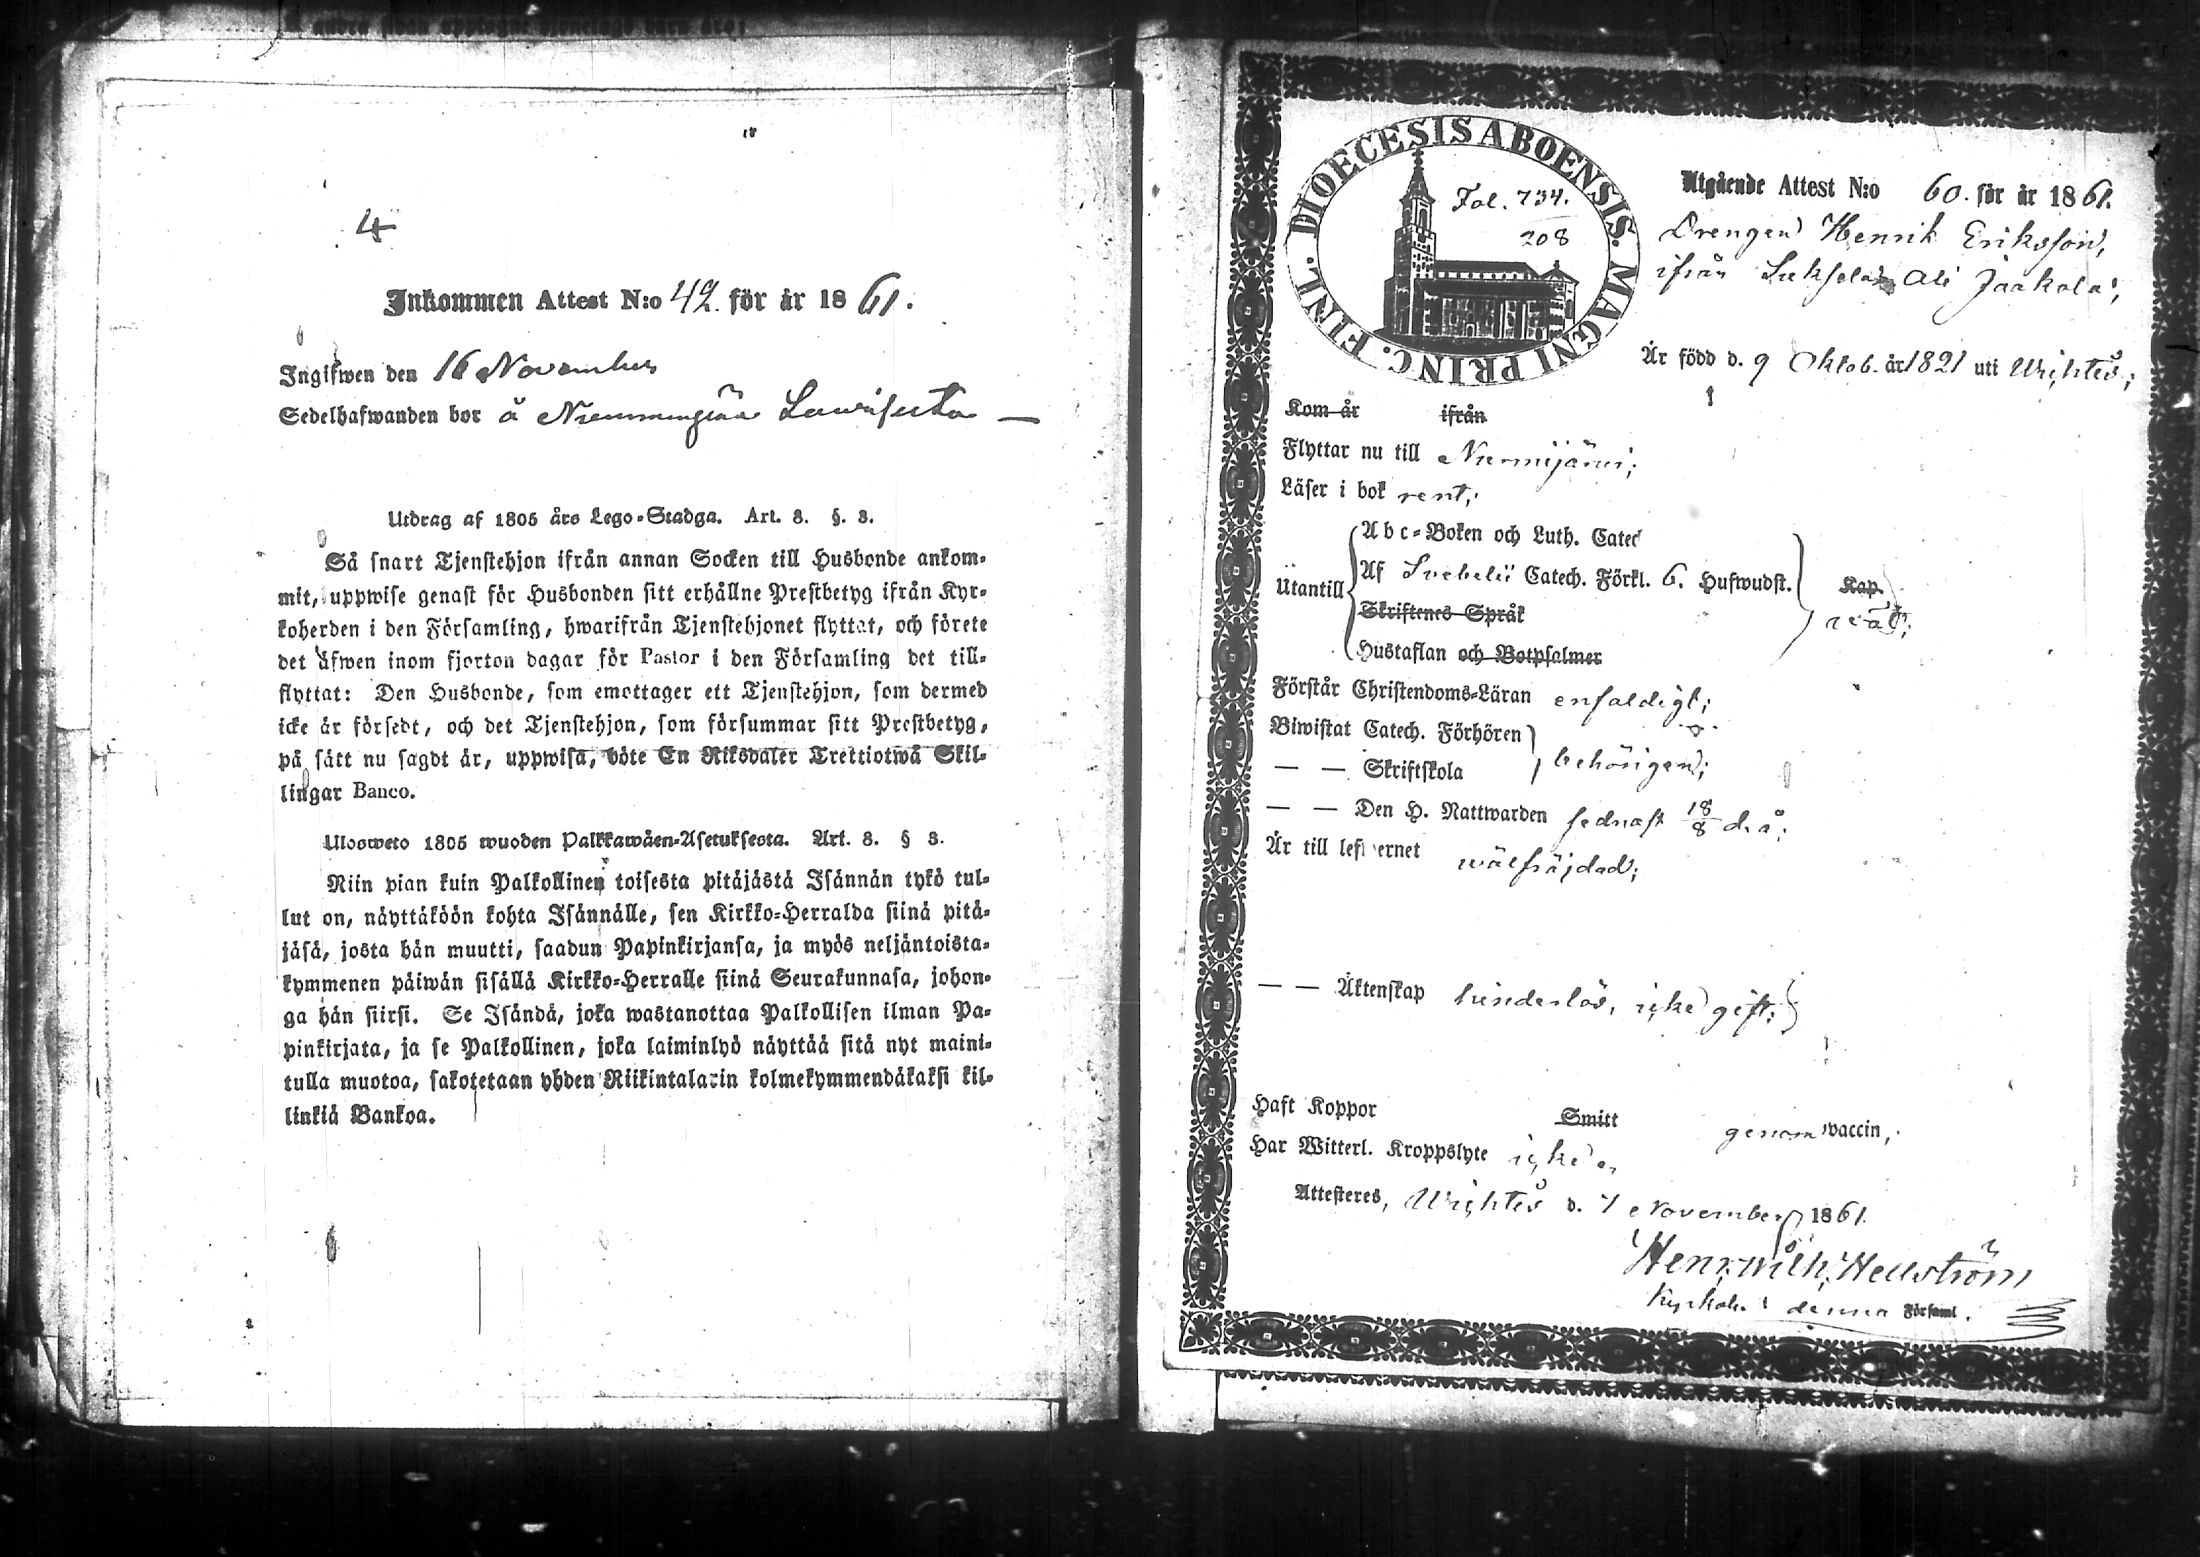 4
Inkommen Attest N:o 42. för år 1861.
Ingifwen den 16 November
Sedelhafwanden bor å
Utdrag af 1805 års Lego-Stadga. Art. 3. §. 3.
Så snart Tjenstehjon ifrån annan Socken till Husbonde ankom-
mit, uppwise genast för Husbonden sitt erhållne Prestbetyg ifrån Kyr-
koherden i den Församling, hwarifrån Tjenstehjonet flyttat, och förete
det äfwen inom fjorton dagar för Pastor i den Församling det till-
flyttat: Den Husbonde, som emottager ett Tjenstehjon, som dermed
icke är försedt, och det Tjenstehjon, som försummar sitt Prestbetyg,
på sätt nu sagdt är, uppwisa, böte En Riksdaler Trettiotwå Skil-
lingar Banco.
Ulosweto 1805 wuoden Palkkawäen-Asetuksesta. Art. 3. § 3.
Niin pian kuin Palkollinen toisesta pitäjästä Isännän tykö tul-
lut on, näyttäköön kohta Isännälle, sen Kirkko-Herralda siinä pitä-
jäsä, josta hän muutti, saadun Papinkirjansa, ja myös neljäntoista-
kymmenen päiwän sisällä Kirkko-Herralle siinä Seurakunnasa, johon-
ga hän siirsi. Se Isändä, joka wastanottaa Palkollisen ilman Pa-
pinkirjata, ja se Palkollinen, joka laiminlyö näyttää sitä nyt maini-
tulla muotoa, sakotetaan yhden Riikintalarin kolmekymmendäkaksi kil-
linkiä Bankoa.
DIOECESIS ABOENSIS. MAGNI PRINC. FINL.
Fol. 734.
208
Utgående Attest N:o 60. för år 1861.
Drengen Henrik Eriksson,
ifrån Ali Jaakola;
Är född d. 9 Oktob. år 1821 uti Wichtis;
Kom år ifrån
Flyttar nu till Nurmijärvi;
Läser i bok rent;
Utantill
Abc-Boken och Luth. Catec
Af Svebelii Catech. Förkl. 6. Hufwudst.
Skriftenes Språk
Hustaflan och Botpsalmer
Kap.
Förstår Christendoms-Läran enfaldigt;
Biwistat Catech. Förhören
— — Skriftskola
behörigen;
— — Den H. Nattwarden sednast 18/8 d. å;
Är till lefwernet wälfräjdad;
— — Äktenskap hinderlös, icke gift;
Haft Koppor Smitt genom vaccin,
Har Witterl. Kroppslyte icke
Attesteres, Wichtis d. 7 November 1861.
Henr. Wilh. Hellström
Kyrkoh. i denna Församl.